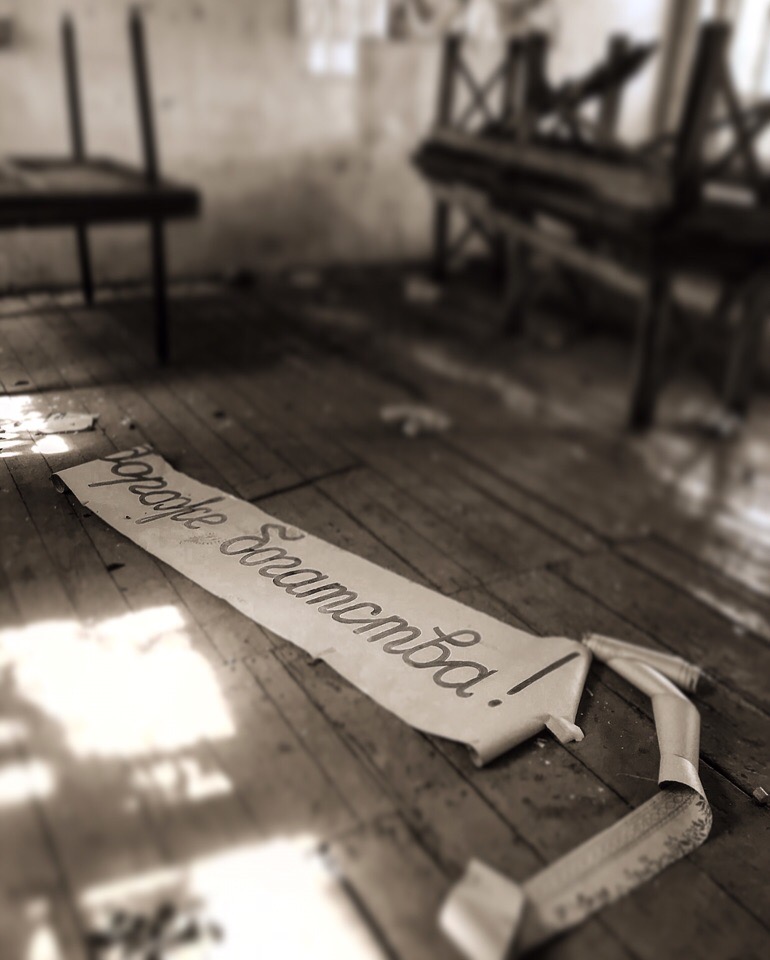 дороже богатства!